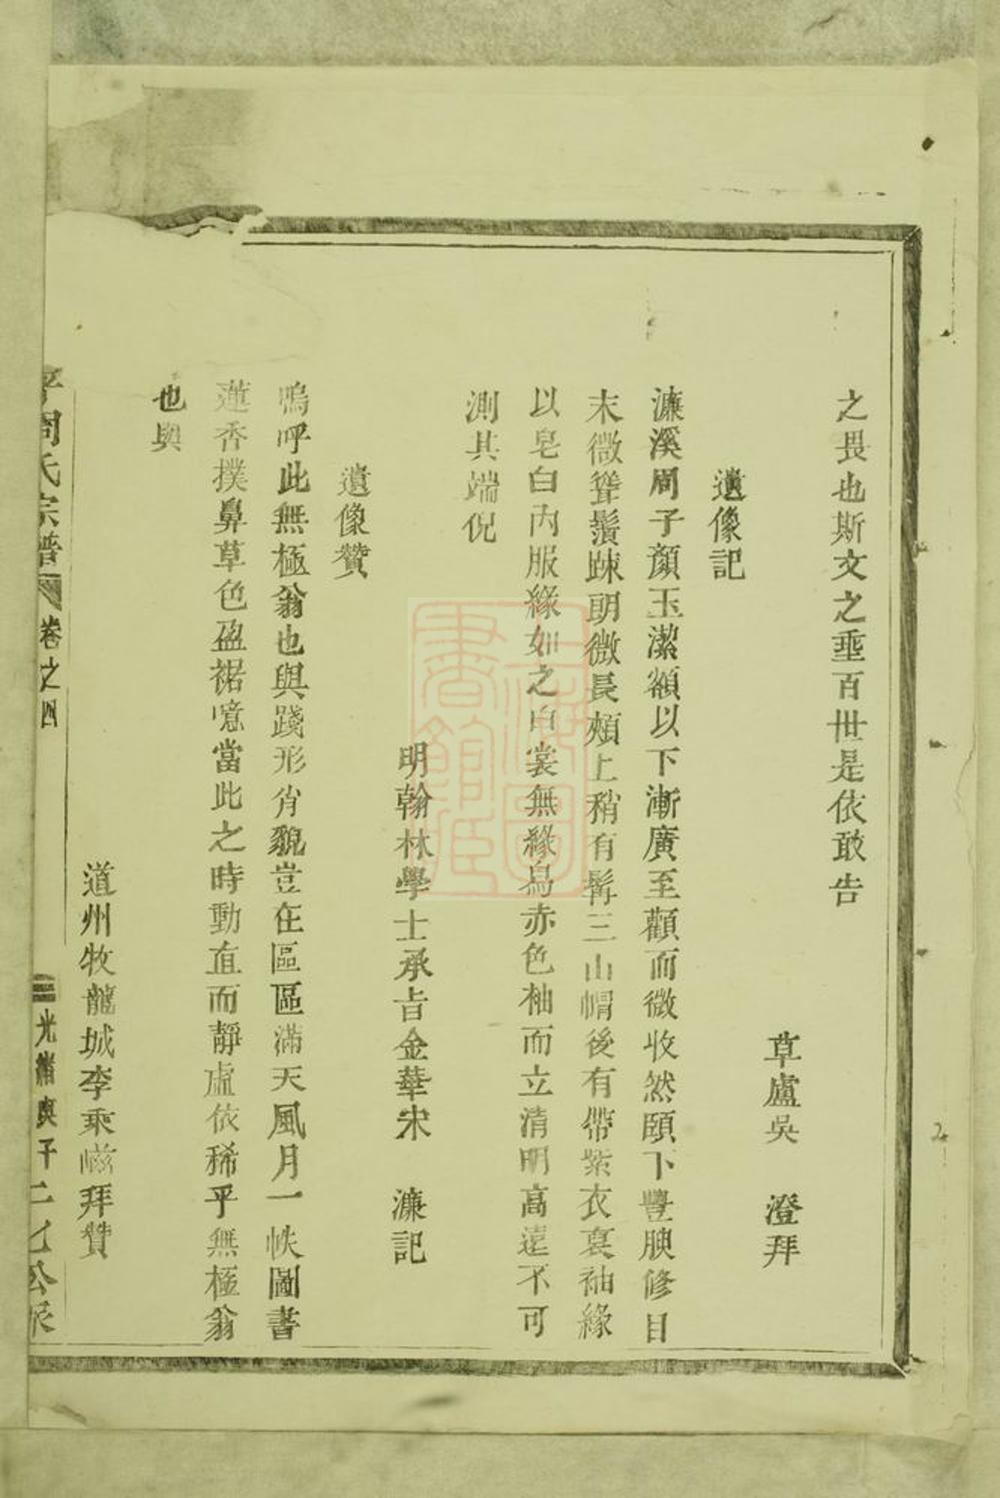 之畏也斯文之垂百世是依敢告
草廬吳　澄拜
遺像記
濂溪周子顏玉潔額以下漸廣至顴而微收然頤下豐腴修目
末微聳鬚踈朗微長頰上稍有髯三山帽後有帶紫衣裒袖緣
以皂白內服緣如之白裳無緣舄赤色袖而立清明高遠不可
測其端倪
明翰林學士承旨金華宋　濂記
遺像贊
嗚呼此無極翁也與踐形肖貌豈在區區滿天風月一帙圖書
蓮香撲鼻草色盈裾噫當此之時動直而靜虛依稀乎無極翁
也與
道州牧龍城李乘嶬拜贊
平周氏宗譜　卷之四　三　光緒庚子二七公派
上海圖書館藏